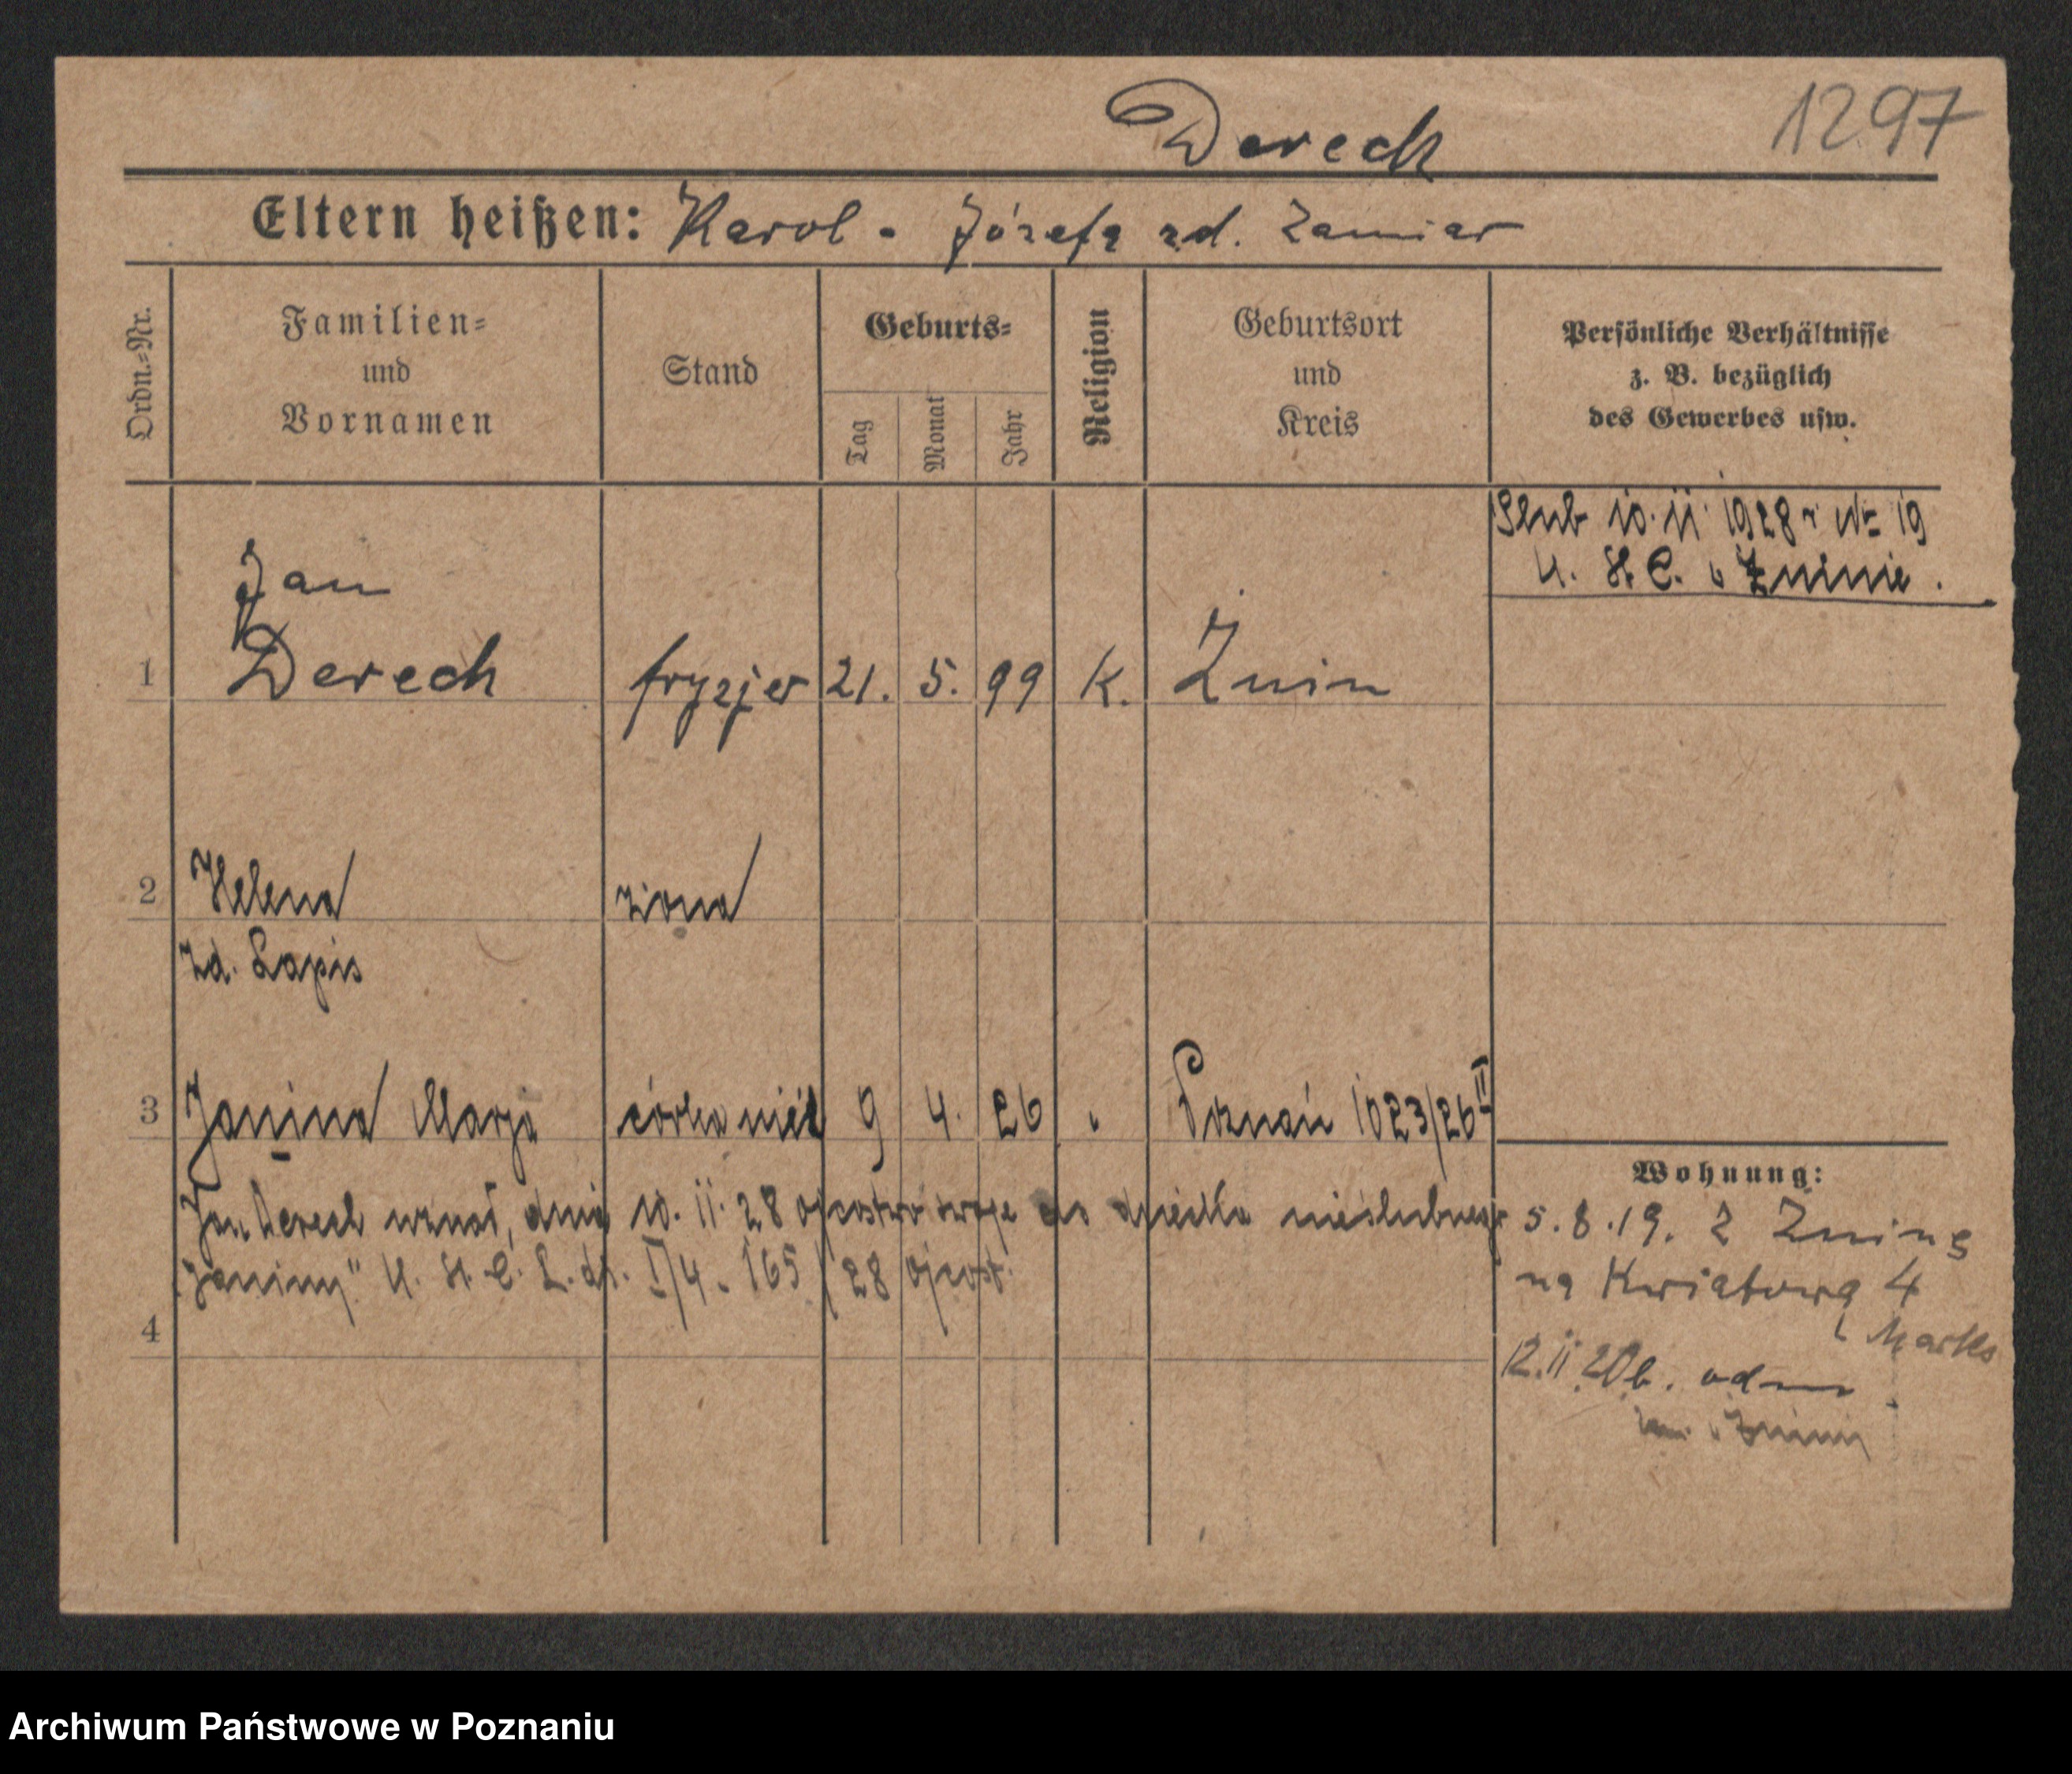 Derech
1297
Eltern heißen: Karol - Józefa zd. Zamiar
Ordn.=Nr.
Familien=
und
Vornamen
Stand
Geburts=
Tag
Monat
Jahr
Religion
Geburtsort
und
Kreis
Persönliche Verhältnisse
z. B. bezüglich
des Gewerbes usw.
Ślub 10.11.1928 r Nr 19
U. St C. w Żninie.
1
Jan
Derech
fryzjer 21. 5. 99 k. Żnin
2 Helena żona
zd. Lapis
3 Janina Marja córka 9 4. 26 " Poznań 1023/26 II
Jan Derech uznał, dnia 10.11.28 ojcostwo swoje do dziecka nieślubnego
"Janiny" U. St. C. I/4. 165/28 ojcost.
4
Wohnung:
5.8.19. z Żnina
na Kwiatowa 4
12.11.20 b. odm
zam. w Żninie
Archiwum Państwowe w Poznaniu